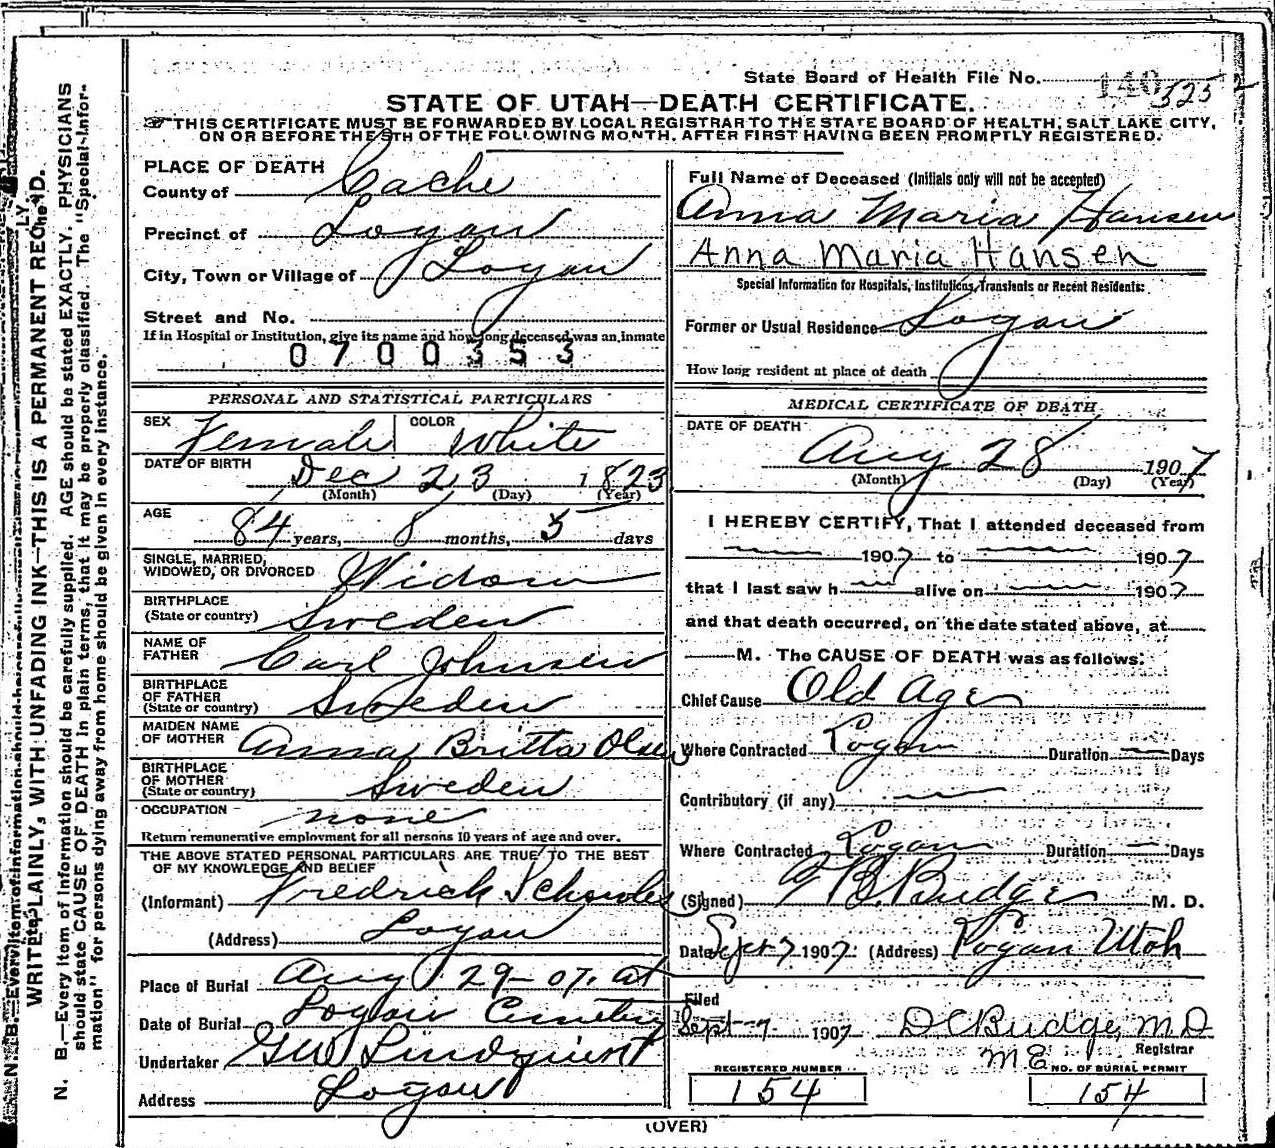 State Board of Health File No. 140 525
STATE OF UTAH—DEATH CERTIFICATE.
THIS CERTIFICATE MUST BE FORWARDED BY LOCAL REGISTRAR TO THE STATE BOARD OF HEALTH, SALT LAKE CITY,
ON OR BEFORE THE 5TH OF THE FOLLOWING MONTH, AFTER FIRST HAVING BEEN PROMPTLY REGISTERED.
WRITE PLAINLY, WITH UNFADING INK—THIS IS A PERMANENT RECORD.
N. B.—Every item of information should be carefully supplied. AGE should be stated EXACTLY. PHYSICIANS
should state CAUSE OF DEATH in plain terms, that it may be properly classified. The "Special Infor-
mation" for persons dying away from home should be given in every instance.
PLACE OF DEATH
County of Cache
Precinct of Logan
City, Town or Village of Logan
Street and No.
If in Hospital or Institution, give its name and how long deceased was an inmate
0700353
PERSONAL AND STATISTICAL PARTICULARS
SEX Female COLOR White
DATE OF BIRTH Dec 23 1823
(Month) (Day) (Year)
AGE 84 years, 8 months, 5 days
SINGLE, MARRIED,
WIDOWED, OR DIVORCED Widow
BIRTHPLACE
(State or country) Sweden
NAME OF
FATHER Carl Johnsen
BIRTHPLACE
OF FATHER
(State or country) Sweden
MAIDEN NAME
OF MOTHER Anna Britta Olsen
BIRTHPLACE
OF MOTHER
(State or country) Sweden
OCCUPATION none
Return remunerative employment for all persons 10 years of age and over.
THE ABOVE STATED PERSONAL PARTICULARS ARE TRUE TO THE BEST
OF MY KNOWLEDGE AND BELIEF
(Informant) Fredrick
(Address) Logan
Place of Burial Aug 29-07. at
Date of Burial Logan Cemetery
Undertaker GW Lindquist
Address Logan
Full Name of Deceased (Initials only will not be accepted)
Anna Maria Hansen
Anna Maria Hansen
Special Information for Hospitals, Institutions, Transients or Recent Residents:
Former or Usual Residence Logan
How long resident at place of death
MEDICAL CERTIFICATE OF DEATH
DATE OF DEATH
Aug 28 1907
(Month) (Day) (Year)
I HEREBY CERTIFY, That I attended deceased from
— 1907 to — 1907
that I last saw h — alive on — 1907
and that death occurred, on the date stated above, at
M. The CAUSE OF DEATH was as follows:
Chief Cause Old Age
Where Contracted Logan Duration — Days
Contributory (if any) —
Where Contracted Logan Duration — Days
(Signed) B. Budge M. D.
Date Sept 7 1907. (Address) Logan Utah
Filed
Sept 7 1907 D C Budge, M.D.
Registrar
M E
REGISTERED NUMBER NO. OF BURIAL PERMIT
154 154
(OVER)